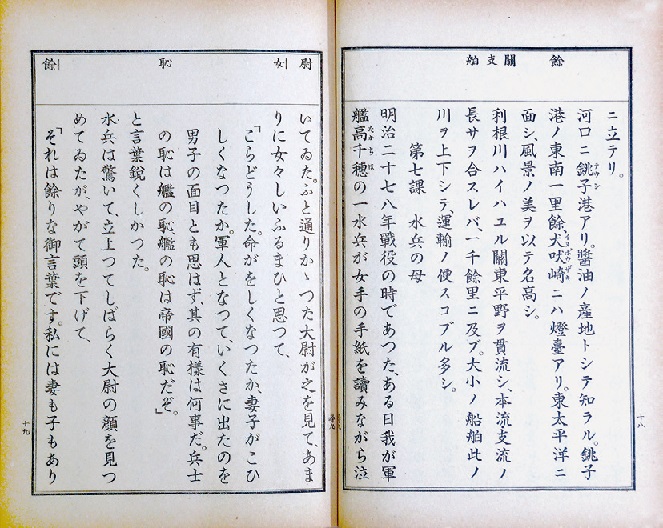 餘 關 支 舶
ニ立テリ。
河口ニ銚子港アリ。醬油ノ產地トシテ知ラル。銚子
港ノ東南一里餘犬吠崎ニハ燈臺アリ。東太平洋ニ
面シ、風景ノ美ヲ以テ名高シ。
利根川ハイハユル關東平野ヲ貫流シ、本流支流ノ
長サヲ合スレバ、一千餘里ニ及ブ。大小ノ船舶此ノ
川ヲ上下シテ運輸ノ便スコブル多シ。
第七課 水兵の母
明治二十七八年戰役の時であつた。ある日我が軍
艦高千穗の一水兵が女手の手紙を讀みながら泣
十八
尉 女 恥 餘
いてゐた。ふと通りかゝつた大尉が之を見て、あま
りに女々しいふるまひと思つて、
「こらどうした。命がをしくなつたか、妻子がこひ
しくなつたか。軍人となつて、いくさに出たのを
男子の面目とも思はず、其の有樣は何事だ。兵士
の恥は艦の恥、艦の恥は帝國の恥だぞ。」
と言葉銳くしかつた。
水兵は驚いて、立上つてしばらく大尉の顏を見つ
めてゐたが、やがて頭を下げて、
「それは餘りな御言葉です。私には妻も子もあり
十九